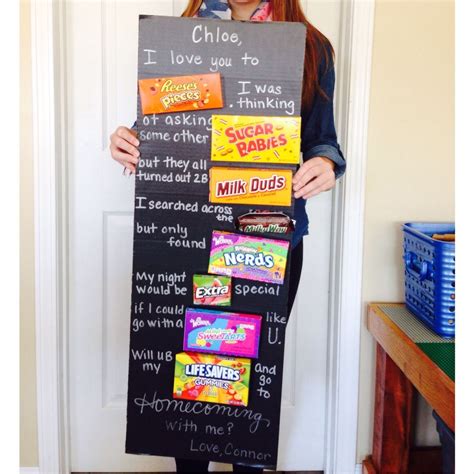 Chloe,
I love you to
REESE'S pieces
. I was
thinking
of asking
some other
SUGAR BABIES
but they all
turned out 2B
Milk Duds
I searched across
the
Milky Way
but only
found
Nerds
My night
would be
Extra
special
if I could
go with a
SweeTARTS
like
U.
Will U B
my
LIFE SAVERS
GUMMIES
and
go to
Homecoming
with me?
Love, Connor